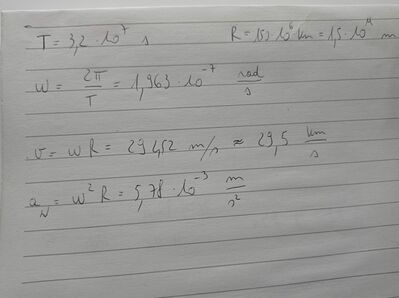 T = 3,2 · 10^7 s R = 150 · 10^6 km = 1,5 · 10^11 m
ω = 2π/T = 1,963 · 10^-7 rad/s
v = ω R = 29452 m/s ≈ 29,5 km/s
a_N = ω^2 R = 5,78 · 10^-3 m/s^2